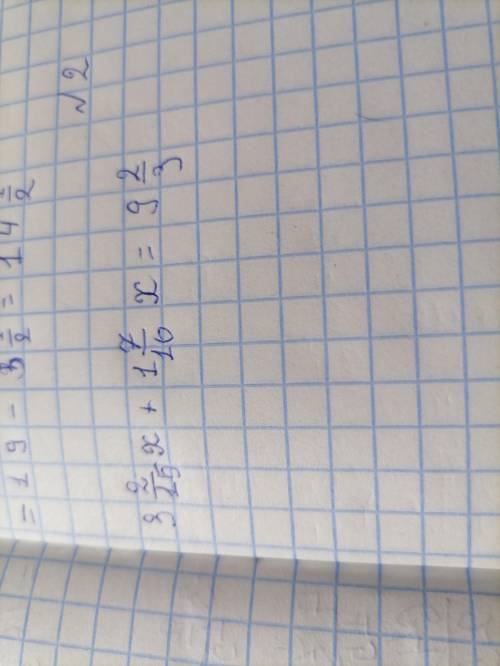 = 19 - 3 1/2 = 14 1/2
№2
3 2/15 x + 1 7/10 x = 9 2/3